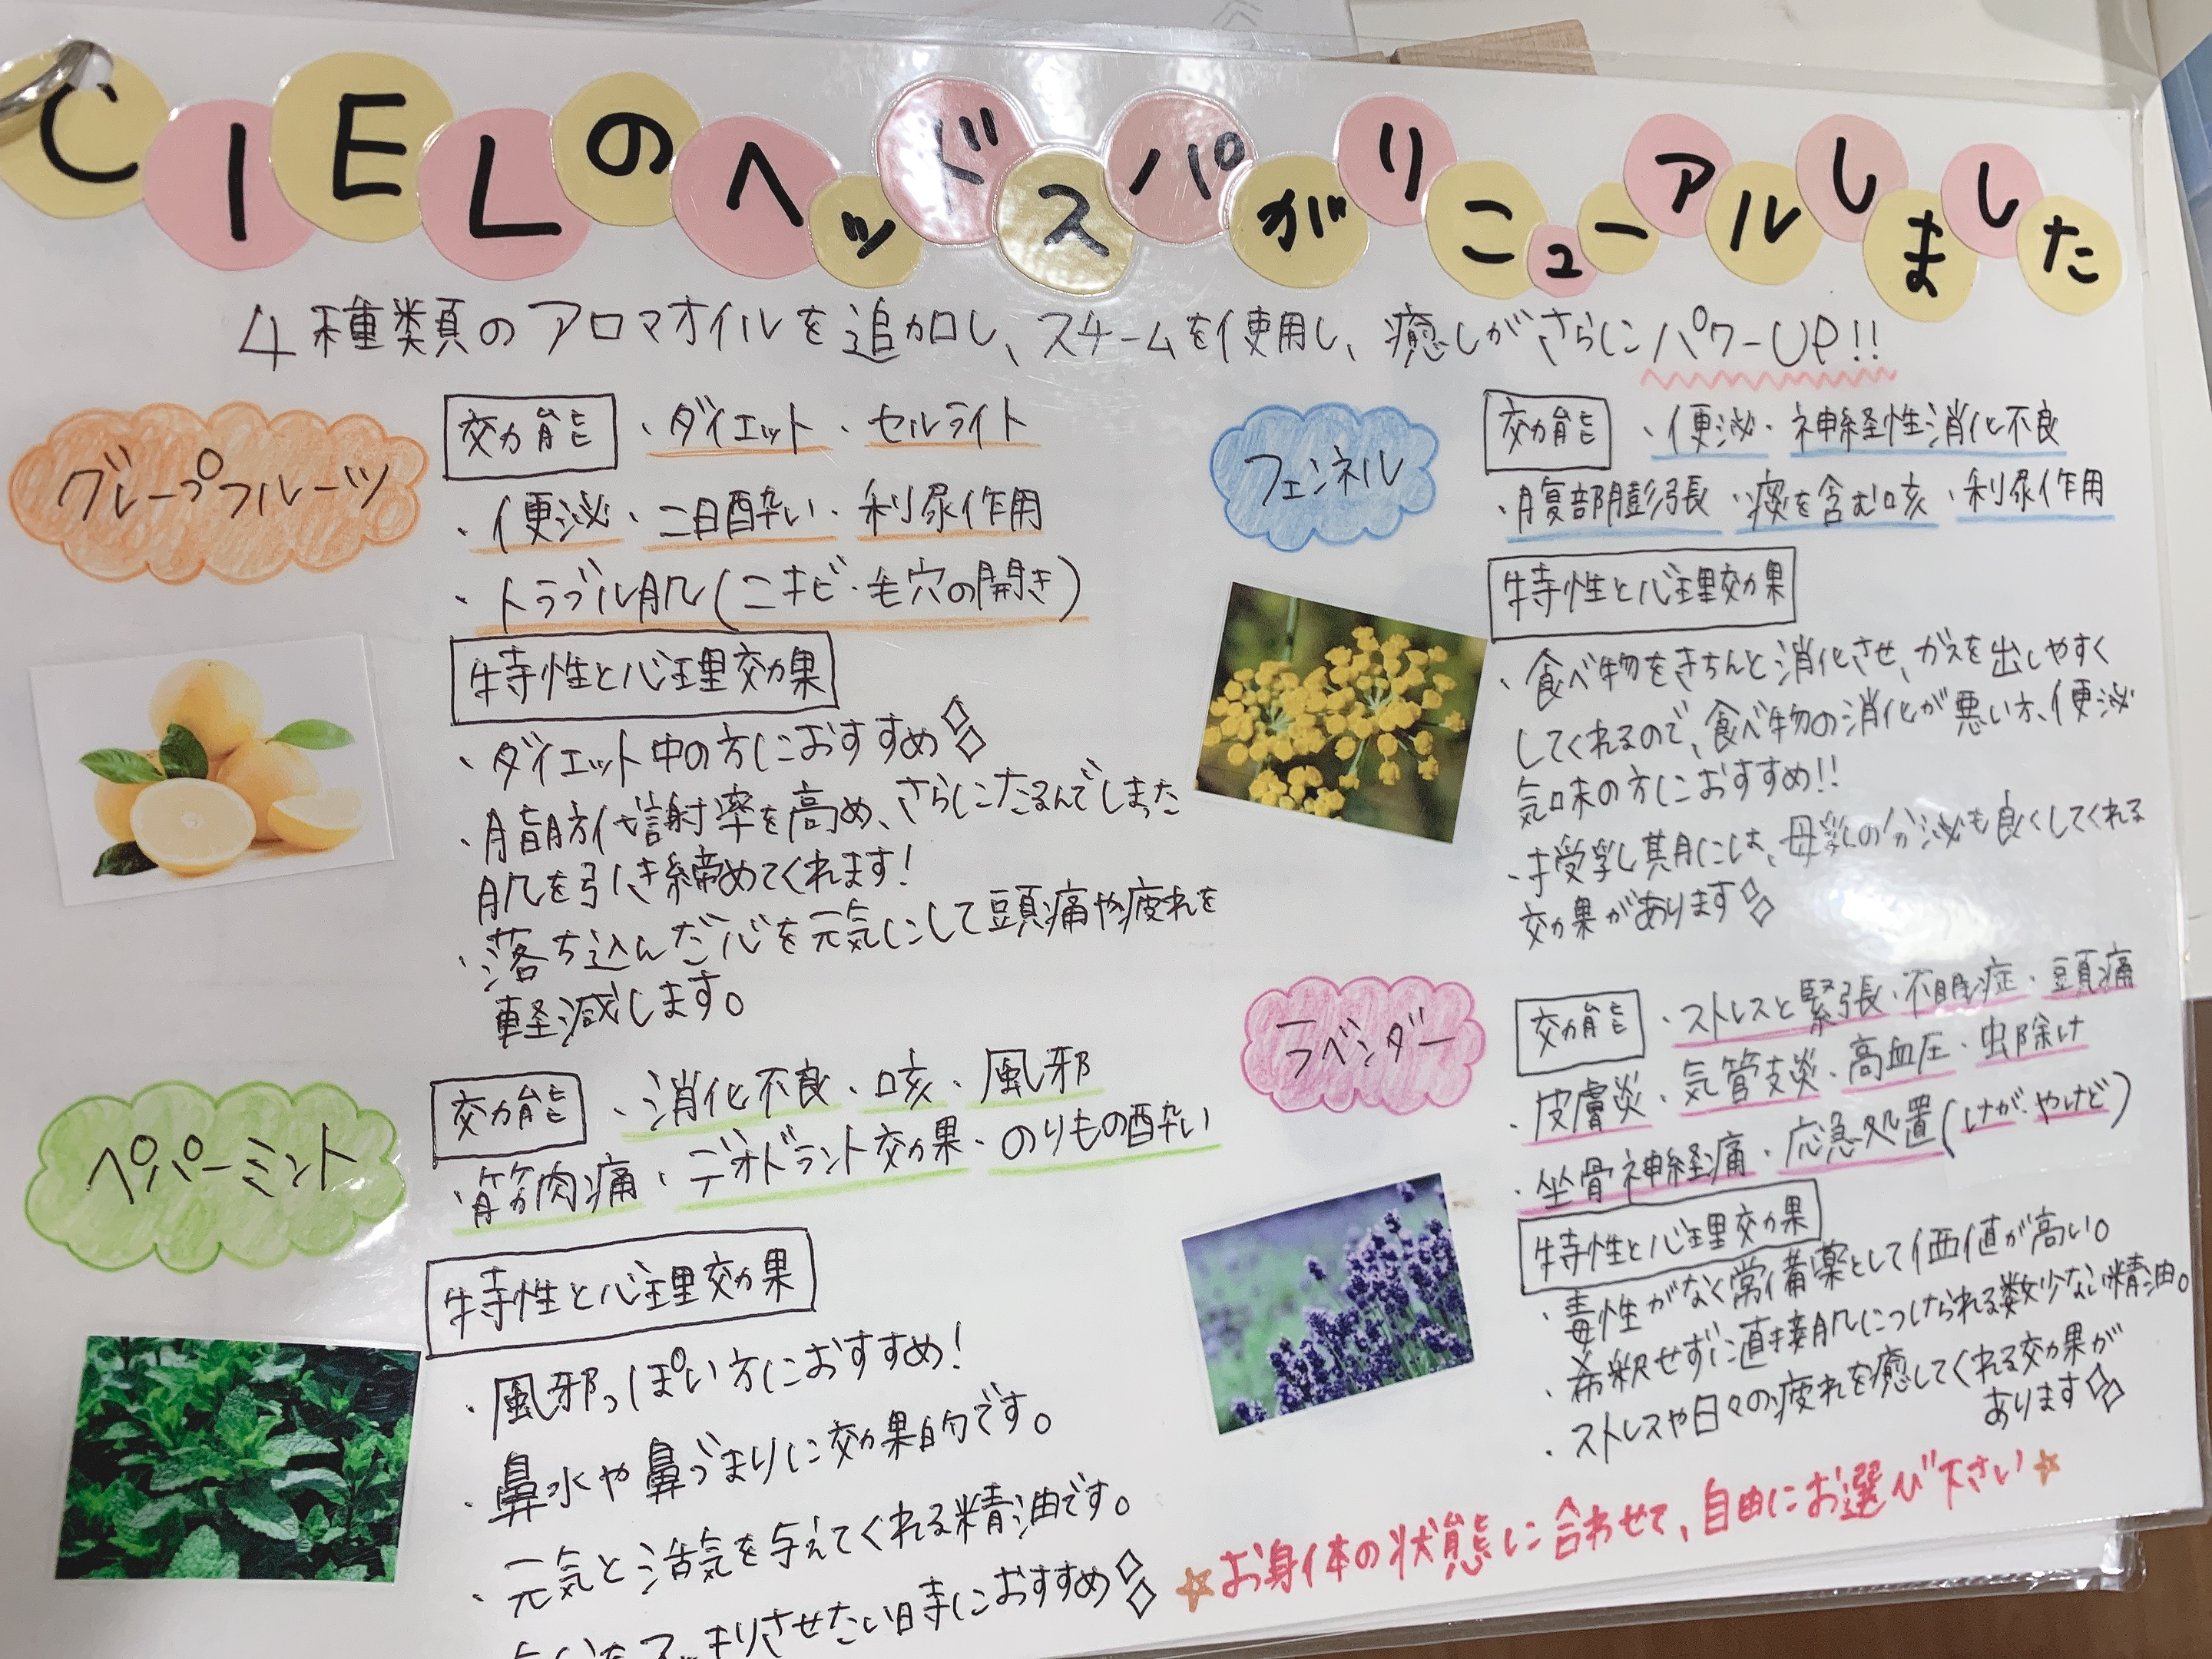 CIELのヘッドスパがリニューアルしました
4種類のアロマオイルを追加し、スチームを使用し、癒しがさらにパワーUP!!
グレープフルーツ
効能 ・ダイエット・セルライト
・便泌・二日酔い・利尿作用
・トラブル肌(ニキビ・毛穴の開き)
特性と心理効果
・ダイエット中の方におすすめ
・脂肪代謝率を高め、さらにたるんでしまった
肌を引き締めてくれます!
・落ち込んだ心を元気にして頭痛や疲れを
軽減します。
ペパーミント
効能 ・消化不良・咳・風邪
・筋肉痛・デオドラント効果・のりもの酔い
特性と心理効果
・風邪っぽい方におすすめ!
・鼻水や鼻づまりに効果的です。
・元気と活気を与えてくれる精油です。
気分をスッキリさせたい時におすすめ
フェンネル
効能 ・便泌・神経性消化不良
・腹部膨張・痰を含む咳・利尿作用
特性と心理効果
・食べ物をきちんと消化させ、ガスを出しやすく
してくれるので、食べ物の消化が悪い方、便泌
気味の方におすすめ!!
・授乳期には、母乳の分泌も良くしてくれる
効果があります
ラベンダー
効能 ・ストレスと緊張・不眠症・頭痛
・皮膚炎・気管支炎・高血圧・虫除け
・坐骨神経痛・応急処置(けが・やけど)
特性と心理効果
・毒性がなく常備薬として価値が高い。
・希釈せずに直接肌につけられる数少ない精油。
・ストレスや日々の疲れを癒してくれる効果が
あります
☆お身体の状態に合わせて、自由にお選び下さい☆